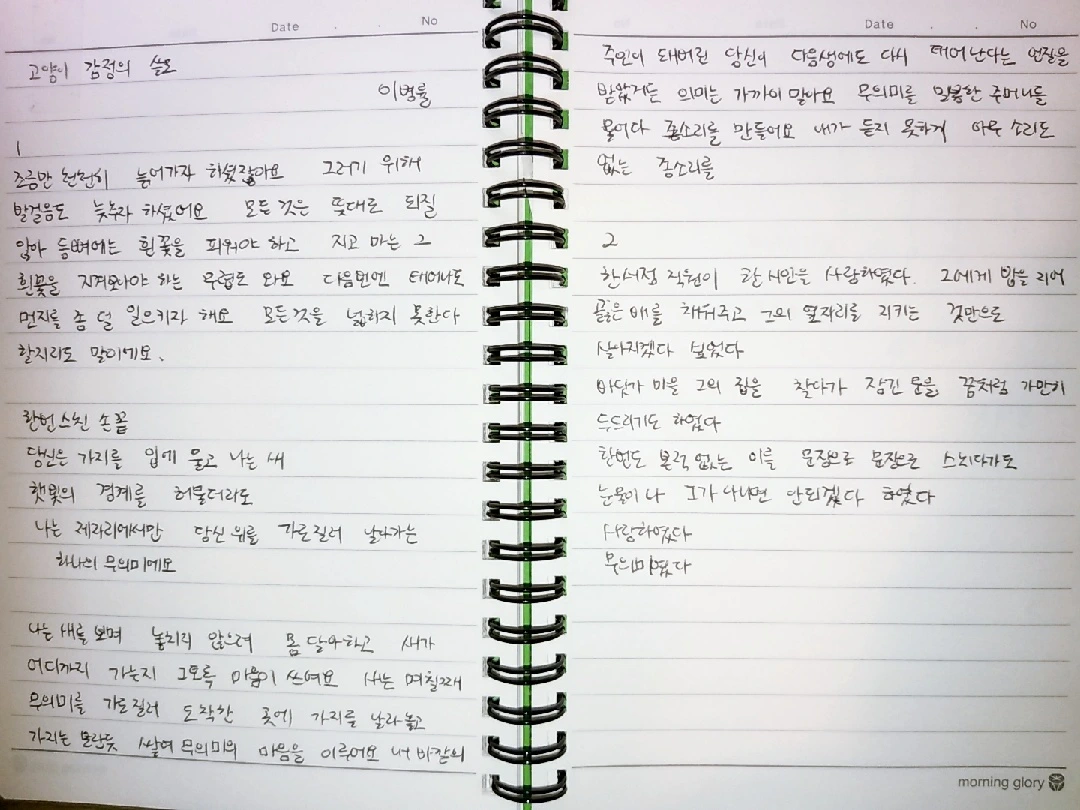 Date . . No
고양이 감정의 쓸모
이병률
1
조금만 천천히 늙어가자 하셨잖아요 그러기 위해
발걸음도 늦추자 하셨어요 모든 것은 뜻대로 되질
않아 등뼈에는 흰 꽃을 피워야 하고 지고 마는 그
흰 꽃을 지켜보아야 하는 무렵도 와요 다음번엔 태어나도
먼지를 좀 덜 일으키자 해요 모든 것을 넓히지 못한다
할지라도 말이에요.
한번 스친 손끝
당신은 가지를 입에 물고 나는 새
햇빛의 경계를 허물더라도
나는 제자리에서만 당신 위를 가로질러 날아가는
하나의 무의미예요
나는 새를 보며 놓치지 않으려 몸 달아하고 새가
어디까지 가는지 그토록 마음이 쓰여요 새는 며칠째
무의미를 가로질러 도착한 곳에 가지를 날라놓고
가지는 보란듯 쌓여 무의미의 마음을 이루어요 내 바깥의
Date . . No
주인이 돼버린 당신이 다음생에도 다시 태어난다는 언질을
받았거든 의미는 가까이 말아요 무의미를 밀봉한 주머니를
물어다 종소리를 만들어요 내가 듣지 못하게 아무 소리도
없는 종소리를
2
한 서정 직원이 한 시인을 사랑하였다. 그에게 밥을 지어
곯은 배를 채워주고 그의 옆자리를 지키는 것만으로
살아지겠다 싶었다
바닷가 마을 그의 집을 찾아가 잠긴 문을 꿈처럼 가만히
두드리기도 하였다
한번도 본 적 없는 이를 문장으로 문장으로 스치다가도
눈물이 나 그가 아니면 안되겠다 하였다
사랑하였다
무의미였다
morning glory